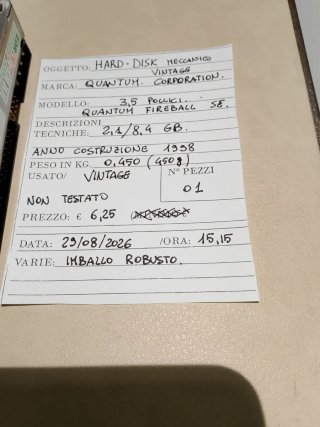 OGGETTO: HARD-DISK MECCANICO
VINTAGE
MARCA: QUANTUM. CORPORATION.
MODELLO: 3,5 POLLICI.
QUANTUM FIREBALL SE.
DESCRIZIONI
TECNICHE: 2,1/8,4 GB.
ANNO COSTRUZIONE 1998
PESO IN KG. 0,450 (450g)
USATO/ VINTAGE
Nº PEZZI
01
NON TESTATO
PREZZO: € 6,25
DATA: 29/08/2026 /ORA: 15,15
VARIE: IMBALLO ROBUSTO.